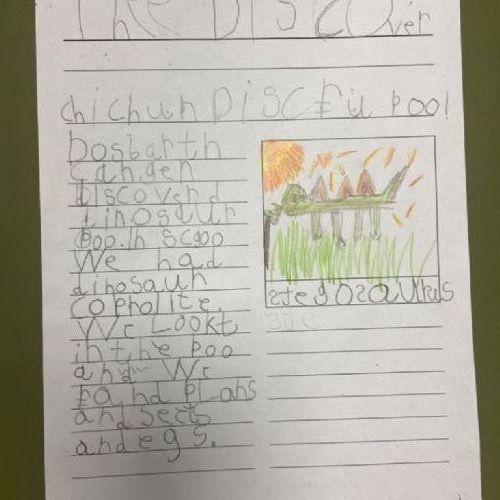 The Discover
chichun Discru pool
bosbarth
canden
discoverd
dinosaur
poo. In scoo
We had
dinosaur
coprolite.
We Lookt
in the poo
and We
fand plans
and sects
and egs.
stegosaurus